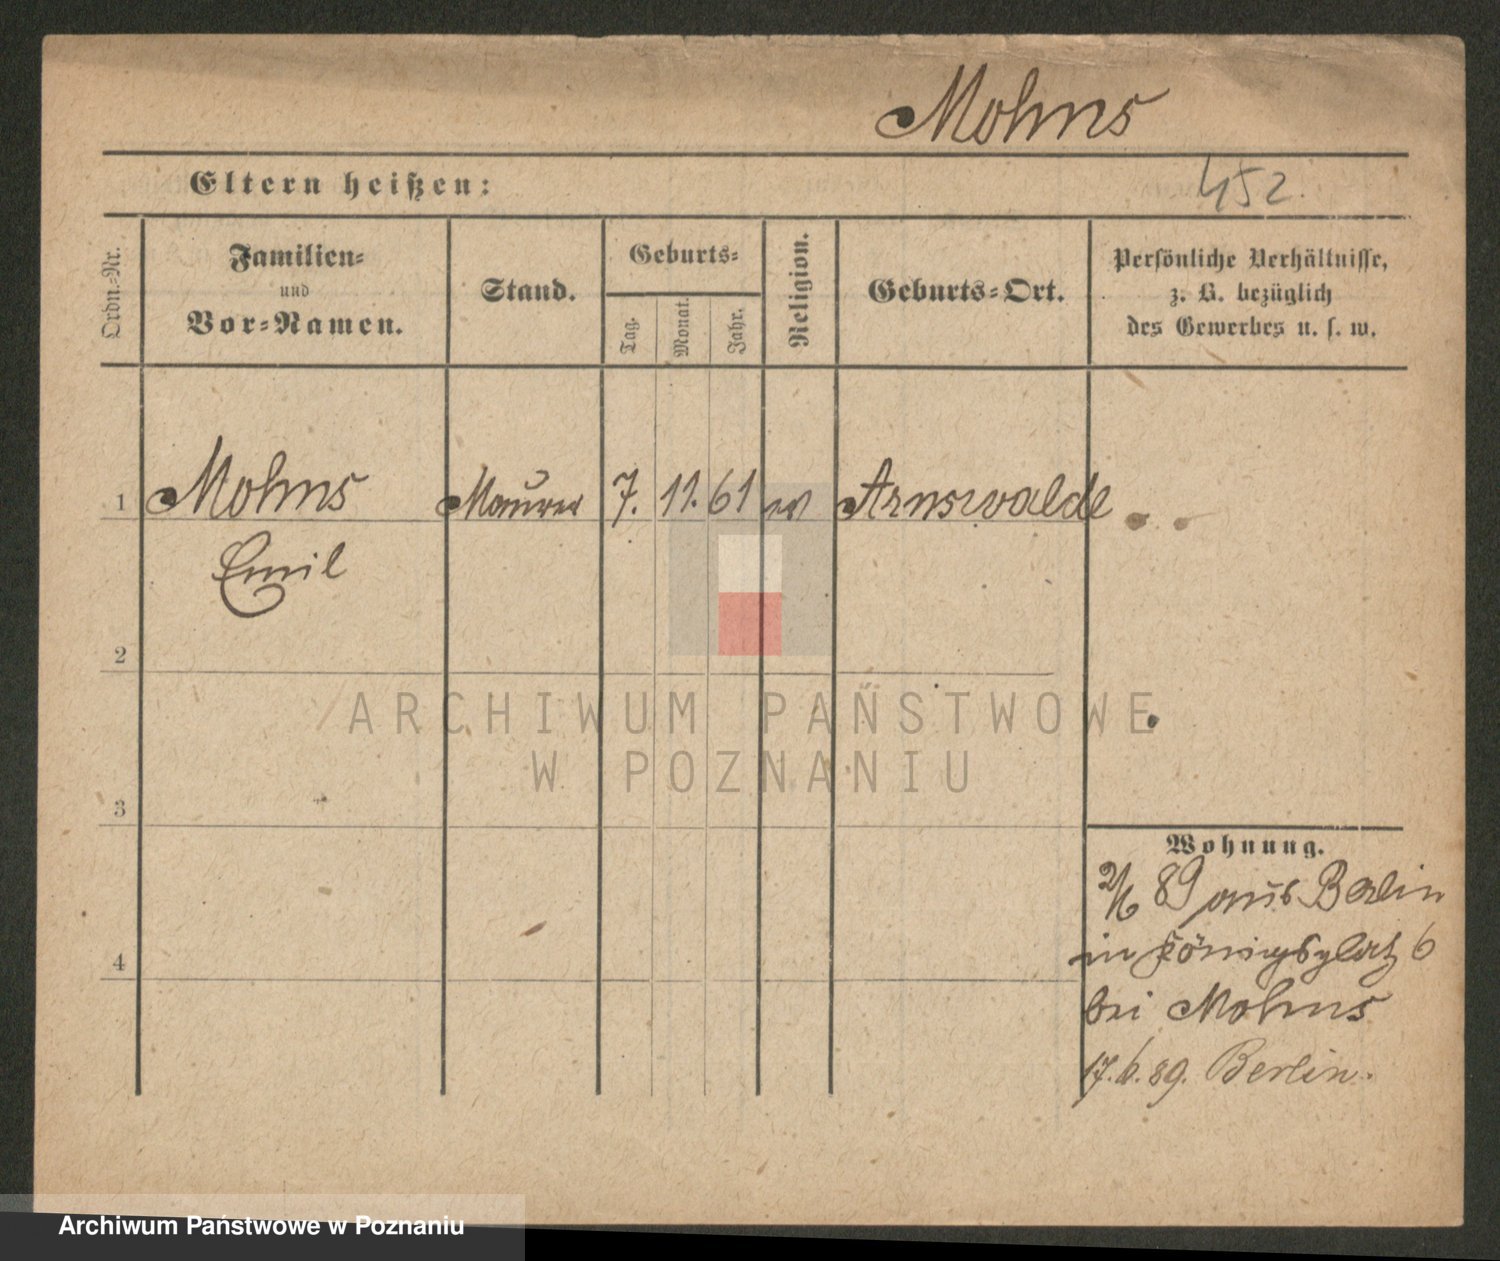 Mohns
Eltern heißen:
452.
Ordn.-Nr.
Familien-
und
Vor-Namen.
Stand.
Geburts-
Tag.
Monat.
Jahr.
Religion.
Geburts-Ort.
Persönliche Verhältnisse,
z. B. bezüglich
des Gewerbes u. s. w.
1 Mohns Maurer 7. 11. 61 ev Arnswalde
Emil
2
3
4
ARCHIWUM PAŃSTWOWE
W POZNANIU
Wohnung.
2/6 89 aus Berlin
in Königsplatz 6
bei Mohns
17.6.89. Berlin.
Archiwum Państwowe w Poznaniu